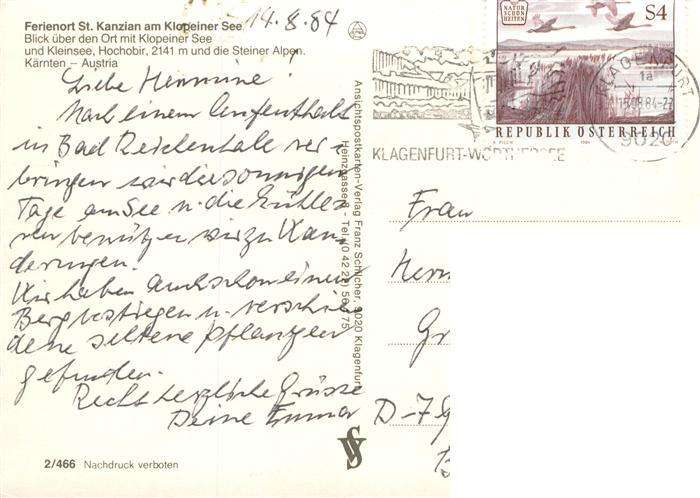 14.8.84
Ferienort St. Kanzian am Klopeiner See
Blick über den Ort mit Klopeiner See
und Kleinsee, Hochobir, 2141 m und die Steiner Alpen.
Kärnten – Austria
Liebe Hermine!
Nach einem Aufenthalt
in Bad Reichenhall ver-
bringen wir die sonnigen
Tage am See u. die Kühle-
ren benützen wir zu Wan-
derungen.
Wir haben auch schon einen
Berg bestiegen u. verschie-
dene seltene Pflanzen
gefunden.
Recht herzliche Grüsse
Deine Emma
2/466 Nachdruck verboten
Ansichtspostkarten-Verlag Franz Schilcher, 9020 Klagenfurt
Heinzgasse 8 - Tel. (0 42 22) 56 75
NATUR
SCHÖN
HEITEN
S4
REPUBLIK ÖSTERREICH
1984
KLAGENFURT
1a
15.08.84-22
9020
KLAGENFURT-WÖRTHERSEE
Frau
Herm
Gr
D-7